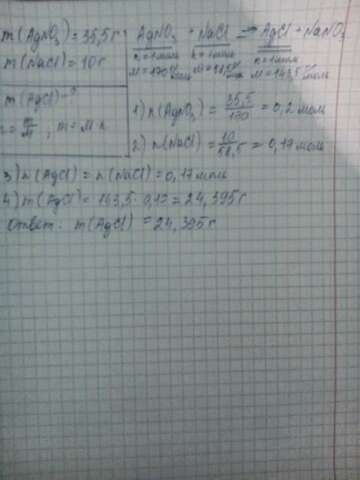 m(AgNO₃) = 35,5 г
m(NaCl) = 10 г
m(AgCl) - ?
n = m/M ; m = M·n
AgNO₃ + NaCl = AgCl + NaNO₃
n = 1 моль n = 1 моль n = 1 моль
M = 170 г/моль M = 58,5 г/моль M = 143,5 г/моль
1) n(AgNO₃) = 35,5/170 = 0,2 моль
2) n(NaCl) = 10/58,5 = 0,17 моль
3) n(AgCl) = n(NaCl) = 0,17 моль
4) m(AgCl) = 143,5 · 0,17 = 24,395 г
Ответ: m(AgCl) = 24,395 г